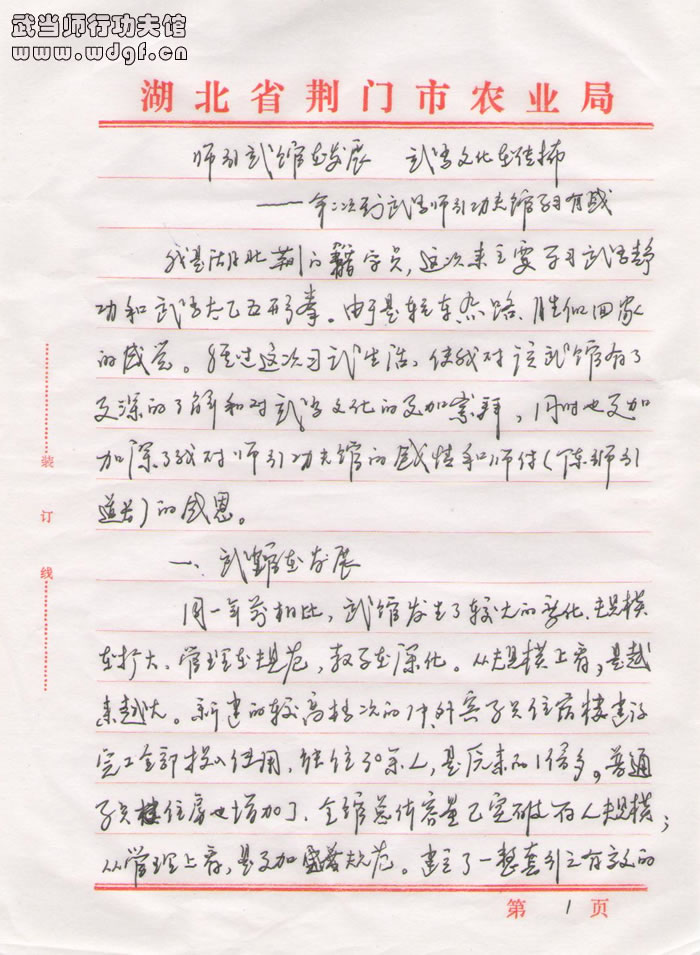 武当师行功夫馆
www.wdgf.cn
湖北省荆门市农业局
师行武馆在发展 武当文化在传播
——第二次到武当师行功夫馆学习有感
我是湖北荆门籍学员,这次来主要学习武当静
功和武当太乙五形拳。由于是轻车熟路、胜似回家
的感觉。经过这次习武生活,使我对该武馆有了
更深的了解和对武当文化的更加崇拜,同时也更加
加深了我对师行功夫馆的感情和师付(陈师行
道长)的感恩。
一、武馆在发展
同一年前相比,武馆发生了较大的变化、规模
在扩大、管理在规范,教学在深化。从规模上看,是越
来越大。新建的较高档次的中外宾学员住宿楼建设
完工全部投入使用,能住30余人,是原来的1倍多。普通
学员住房也增加了、全馆总体容量已突破百人规模;
从管理上看,是更加规范。建立了一整套行之有效的
装
订
线
第 1 页